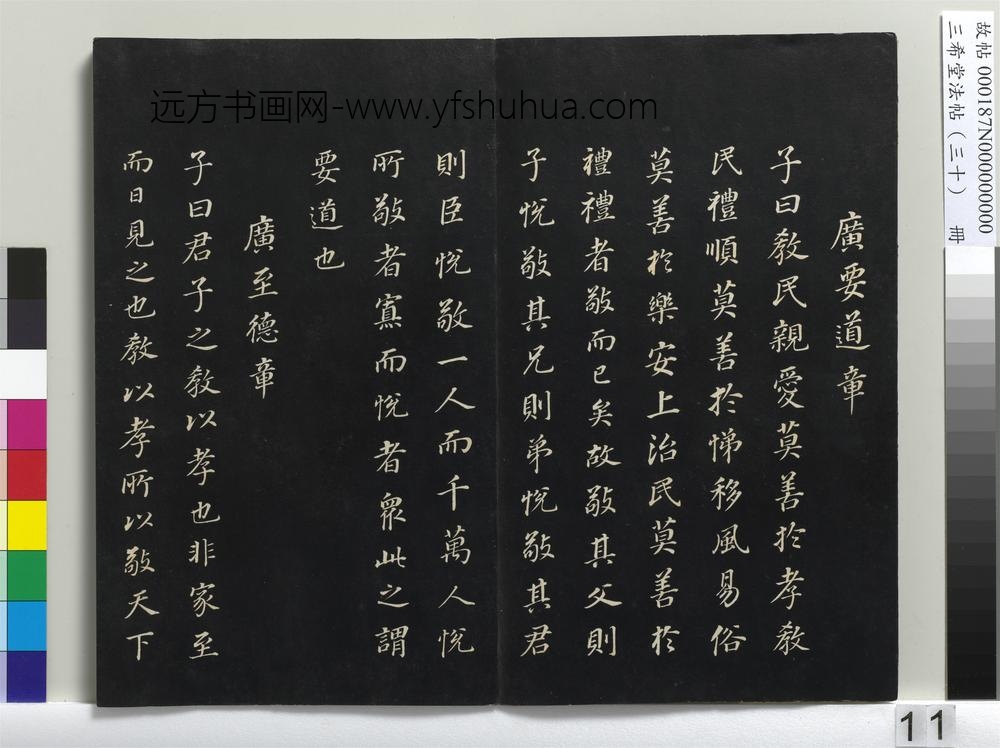 廣要道章
子曰教民親愛莫善於孝教
民禮順莫善於悌移風易俗
莫善於樂安上治民莫善於
禮禮者敬而已矣故敬其父則
子悅敬其兄則弟悅敬其君
則臣悅敬一人而千萬人悅
所敬者寡而悅者衆此之謂
要道也
廣至德章
子曰君子之教以孝也非家至
而日見之也教以孝所以敬天下
远方书画网-www.yfshuhua.com
故帖 000187N000000000
三希堂法帖（三十） 冊
11